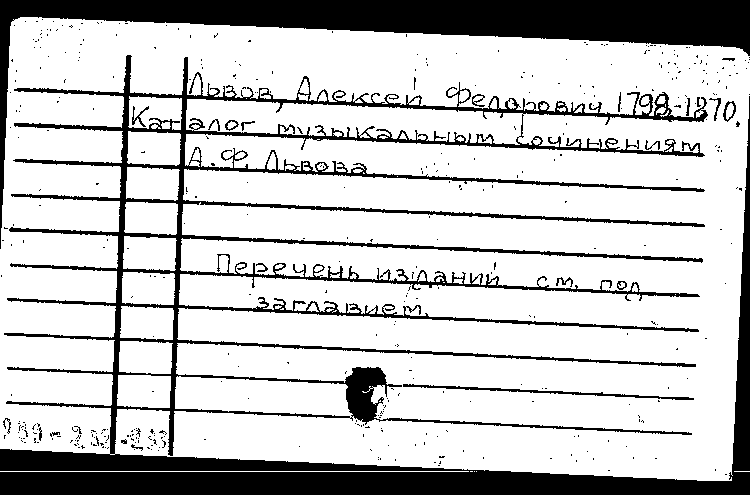 Львов, Алексей Федорович, 1798-1870.
Каталог музыкальным сочинениям
А.Ф. Львова
Перечень изданий см. под
заглавием.